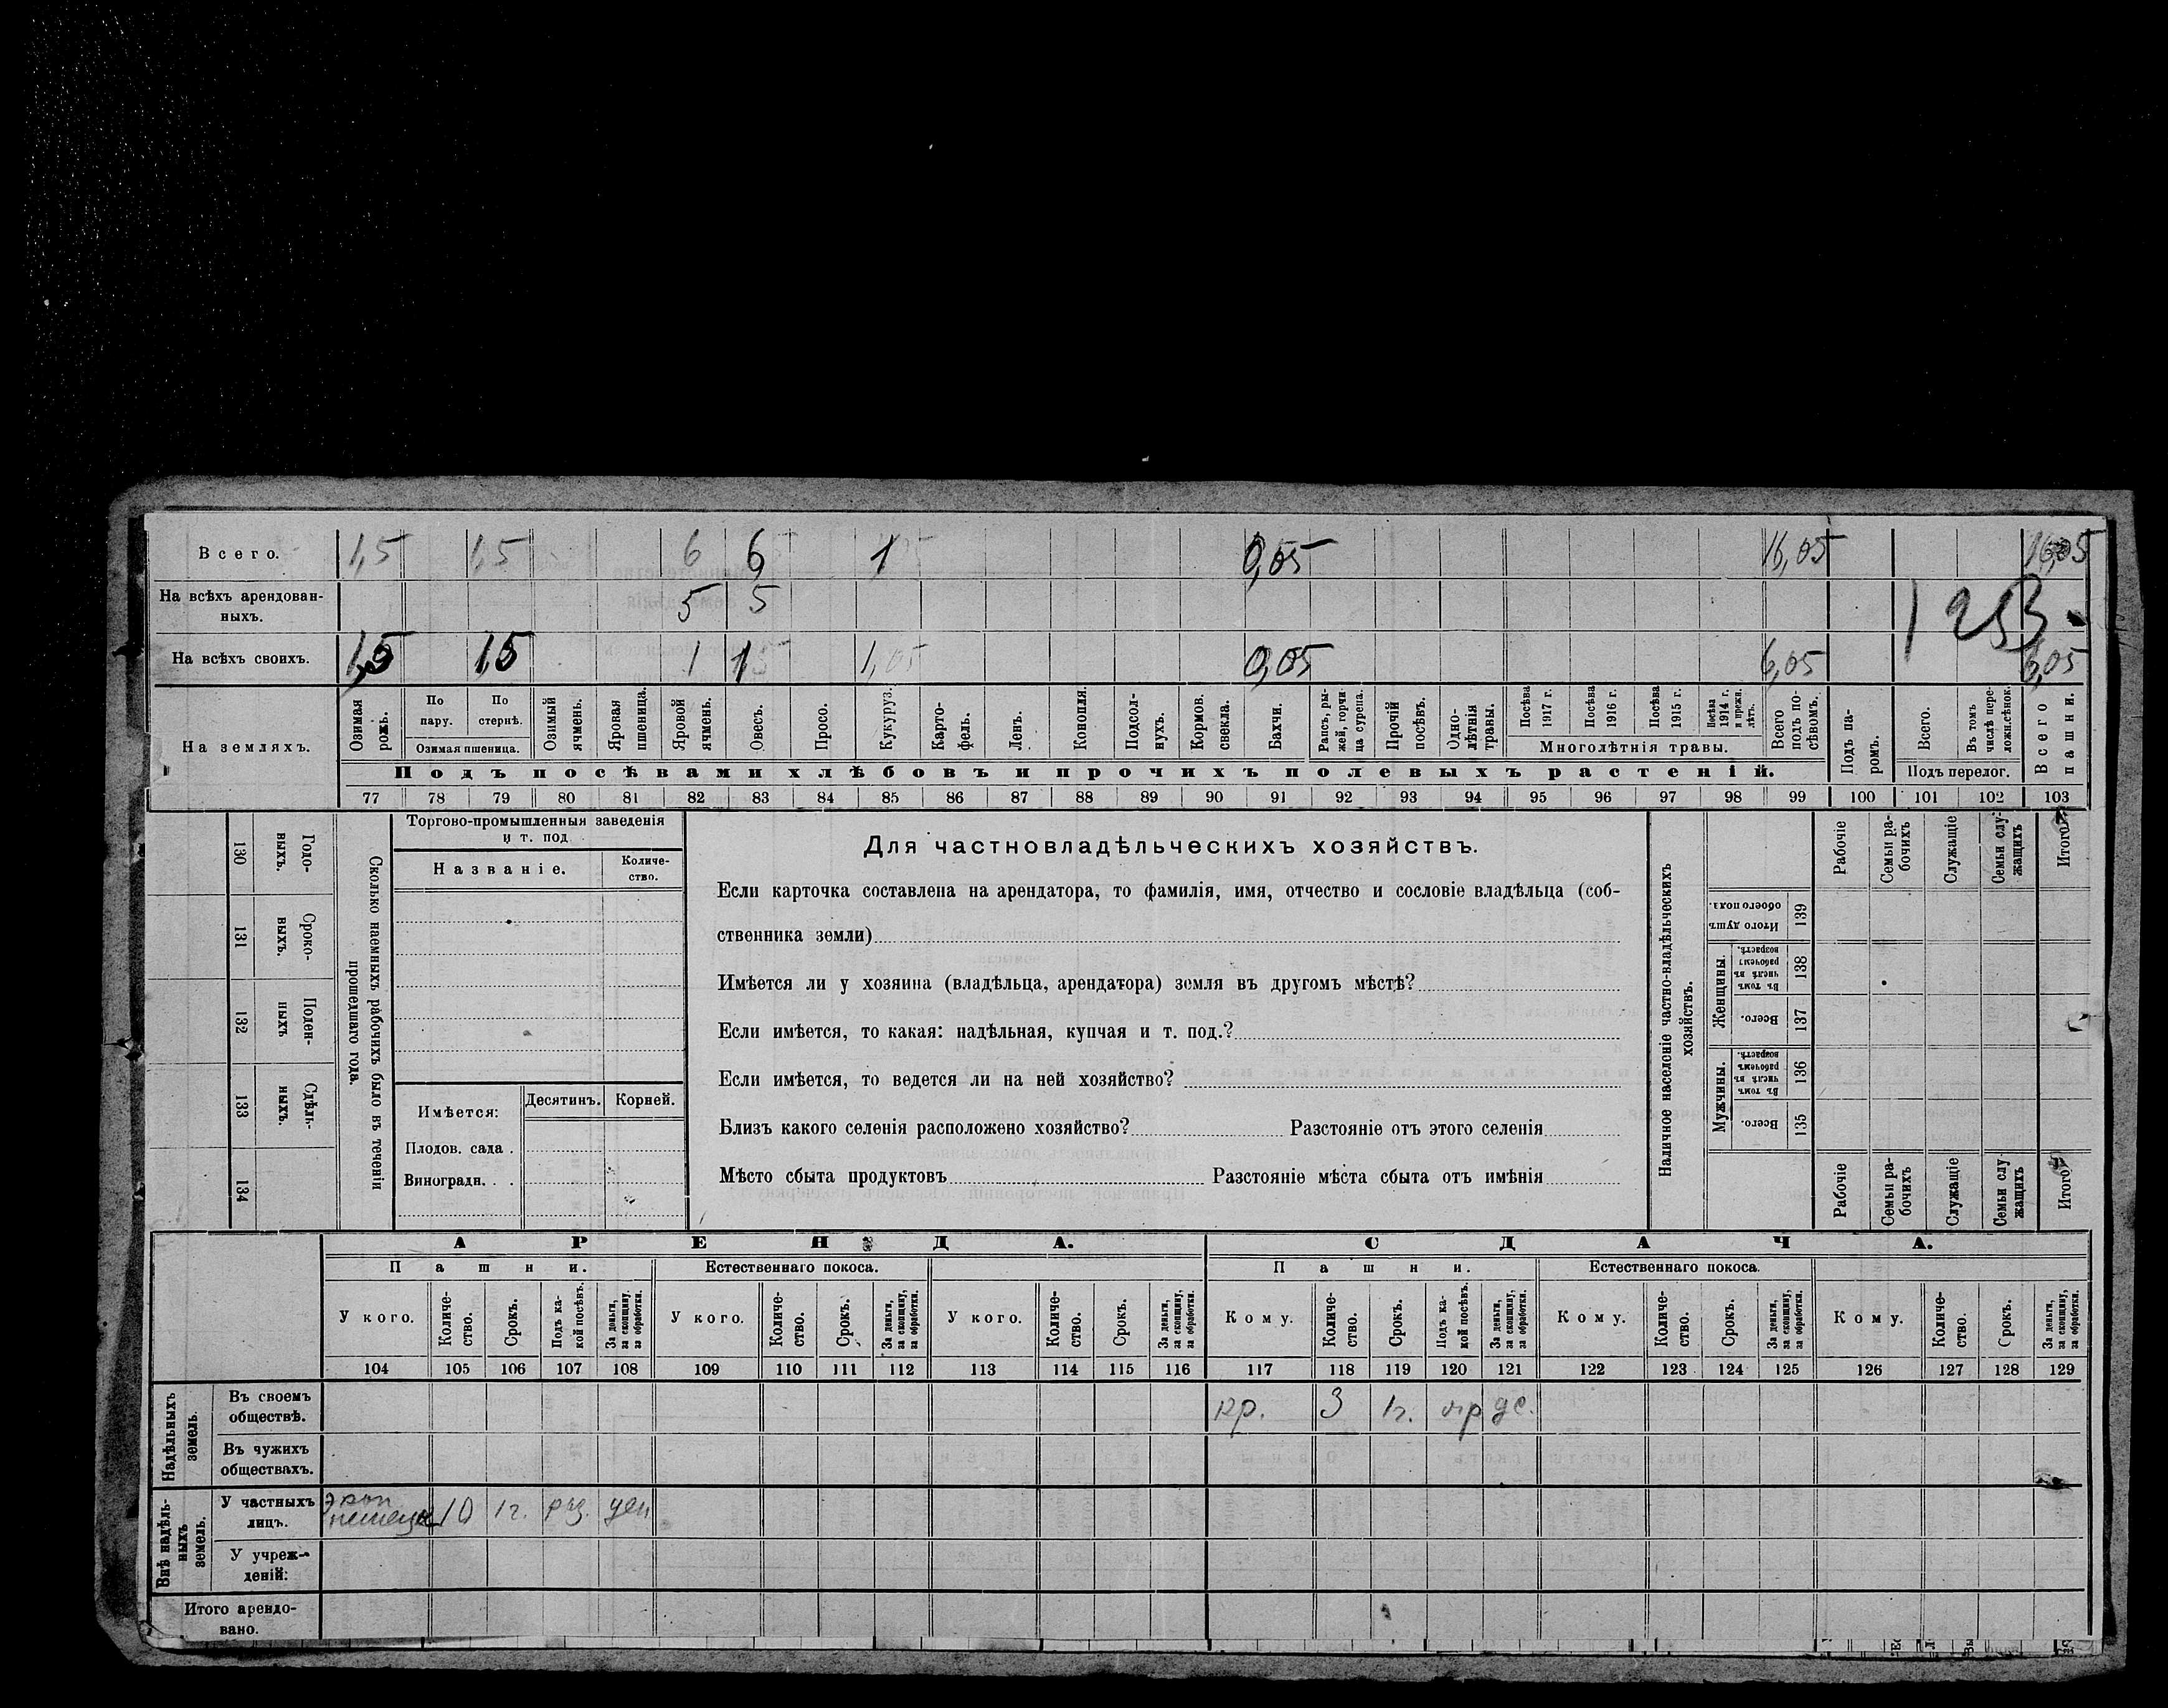 Всего. 1,5 1,5 6 6 1 0,05 16,05 16,05
На всѣхъ арендован-
ныхъ. 5 5 1253
На всѣхъ своихъ. 1,5 1,5 1 1 1,05 0,05 6,05 6,05
На земляхъ.
Озимая рожь.
По пару.
По стернѣ.
Озимая пшеница.
Озимый ячмень.
Яровая пшеница.
Яровой ячмень.
Овесъ.
Просо.
Кукуруз.
Карто-
фель.
Ленъ.
Конопля.
Подсол-
нухъ.
Кормов. свекла.
Бахчи.
Рапсъ, ры-
жей, горчи-
ца сурепа.
Прочій посѣвъ.
Одно-
лѣтнія травы.
Посѣва 1917 г.
Посѣва 1916 г.
Посѣва 1915 г.
Посѣва 1914 г. и прежн. лѣтъ.
Многолѣтнія травы.
Всего подъ по-
сѣвомъ.
Подъ посѣвами хлѣбовъ и прочихъ полевыхъ растеній.
Подъ па-
ромъ.
Всего.
Въ томъ числѣ пере-
ложн.сѣнок.
Подъ перелог.
Всего пашни.
77 78 79 80 81 82 83 84 85 86 87 88 89 90 91 92 93 94 95 96 97 98 99 100 101 102 103
130 Годо-
выхъ.
131 Сроко-
выхъ.
132 Поден-
ныхъ
133 Сдѣль-
ныхъ.
134
Сколько наемныхъ рабочихъ было въ теченіи
прошедшаго года.
Торгово-промышленныя заведенія
и т. под
Названіе. Количе-
ство.
Имѣется: Десятинъ. Корней.
Плодов. сада .
Виноградн. . .
Для частновладѣльческихъ хозяйствъ.
Если карточка составлена на арендатора, то фамилія, имя, отчество и сословіе владѣльца (соб-
ственника земли)
Имѣется ли у хозяина (владѣльца, арендатора) земля въ другомъ мѣстѣ?
Если имѣется, то какая: надѣльная, купчая и т. под.?
Если имѣется, то ведется ли на ней хозяйство?
Близъ какого селенія расположено хозяйство? Разстояніе отъ этого селенія
Мѣсто сбыта продуктовъ Разстояніе мѣста сбыта отъ имѣнія
Наличное населеніе частно-владѣльческихъ
хозяйствъ.
Рабочіе
Семьи ра-
бочихъ
Служащіе
Семьи слу-
жащихъ
Итого
Итого душъ обоего пола. 139
Женщины.
Въ томъ числѣ въ рабочемъ возрастѣ. 138
Всего. 137
Мужчины.
Въ томъ числѣ въ рабочемъ возрастѣ. 136
Всего. 135
Рабочіе
Семьи ра-
бочихъ
Служащіе
Семьи слу-
жащихъ
Итого
АРЕНДА. СДАЧА.
Пашни. Естественнаго покоса. Пашни. Естественнаго покоса.
У кого.
Количе-
ство.
Срокъ.
Подъ ка-
кой посѣвъ.
За деньги, за скопщину, за обработки.
У кого.
Количе-
ство.
Срокъ.
За деньги, за скопщину, за обработки.
У кого.
Количе-
ство.
Срокъ.
За деньги, за скопщину, за обработки.
Кому.
Количе-
ство.
Срокъ.
Подъ ка-
кой посѣвъ.
За деньги, за скопщину, за обработки.
Кому.
Количе-
ство.
Срокъ.
За деньги, за скопщину, за обработки.
Кому.
Количе-
ство.
Срокъ.
За деньги, за скопщину, за обработки.
104 105 106 107 108 109 110 111 112 113 114 115 116 117 118 119 120 121 122 123 124 125 126 127 128 129
Надѣльныхъ земель.
Въ своемъ
обществѣ. кр. 3 1г. яр де.
Въ чужихъ
обществахъ.
Внѣ надѣль-
ныхъ земель.
У частныхъ
лицъ. 10 1г. рз. ден
У учреж-
деній:
Итого арендо-
вано.